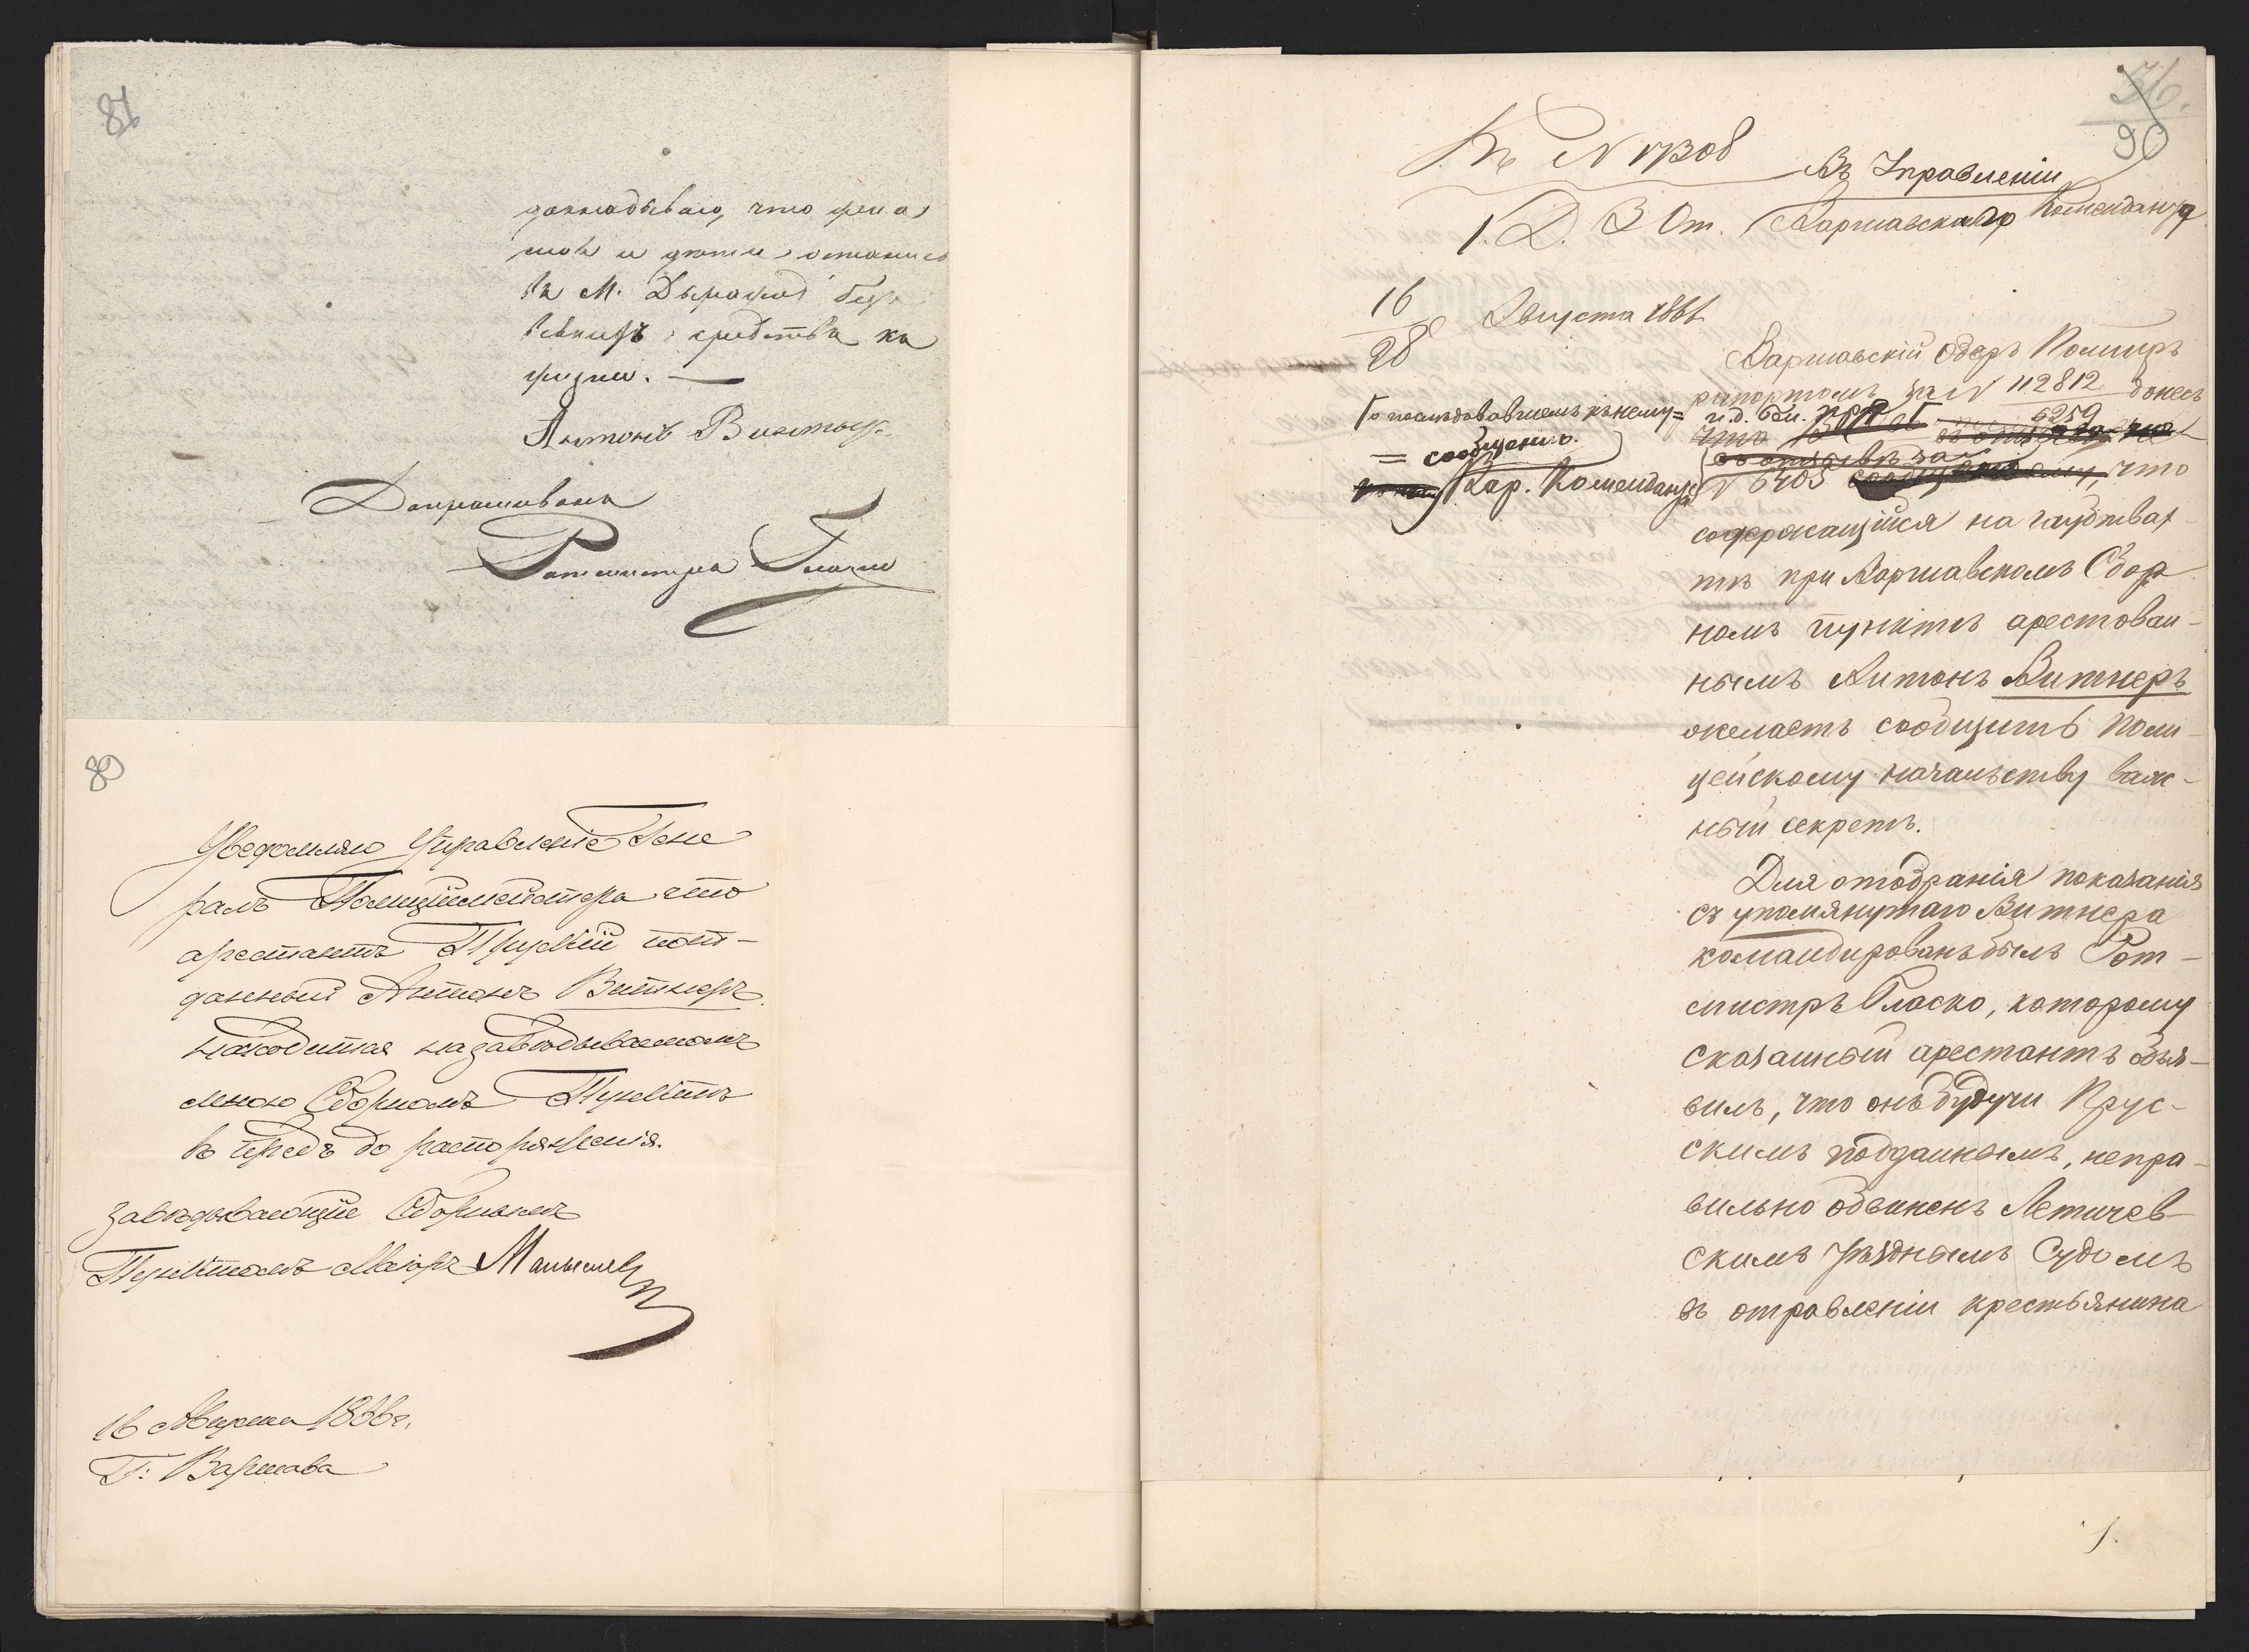 81
докладываю, что жена
моя и дети остались
въ М. Дыраж безъ
всякихъ средствъ къ
жизни. —
Антонъ
Допрашивалъ
Ротмистръ Гласко
89
Уведомляю Управленiе Гене
ралъ Полицiймейстера что
арестантъ Прускiй под-
данный Антонъ Витнеръ
находится на завѣдываемомъ
мною Сборномъ Пунктѣ
в предь до распоряженiя.
Завѣдывающiй Сборнымъ
Пунктомъ Маiоръ
16 Августа 1866 г.
Г: Варшава
36.
90
Къ N 17308
Въ Управленiи
1. Д. 3 От. Варшавскаго Коменданта
16
28 Августа 1866
Варшавскiй Оберъ Полицм
рапортомъ за N 112812 донесъ
Г о послѣдовавшемъ къ нему =
= сообщенiю.
и. д. 6259
Вар. Коменданта
N 6405 что
содержащiйся на гауптвах-
тѣ при Варшавскомъ Сбор
номъ пунктѣ арестован-
нымъ Антонъ Витнеръ
желаетъ сообщить поли-
цейскому начальству важ-
ный секретъ.
Для отобранiя показанiя
съ упомянутаго Витнера
командированъ былъ Рот-
мистръ Гласко, которому
сказанный арестантъ объя-
вилъ, что онъ будучи Прус-
скимъ подданнымъ, непра-
вильно обвиненъ Летичев-
скимъ Уѣзднымъ Судомъ
въ отравленiи крестьянина
1.